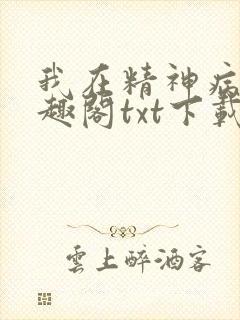 我在精神病
趣阁txt下载
雲上醉酒客